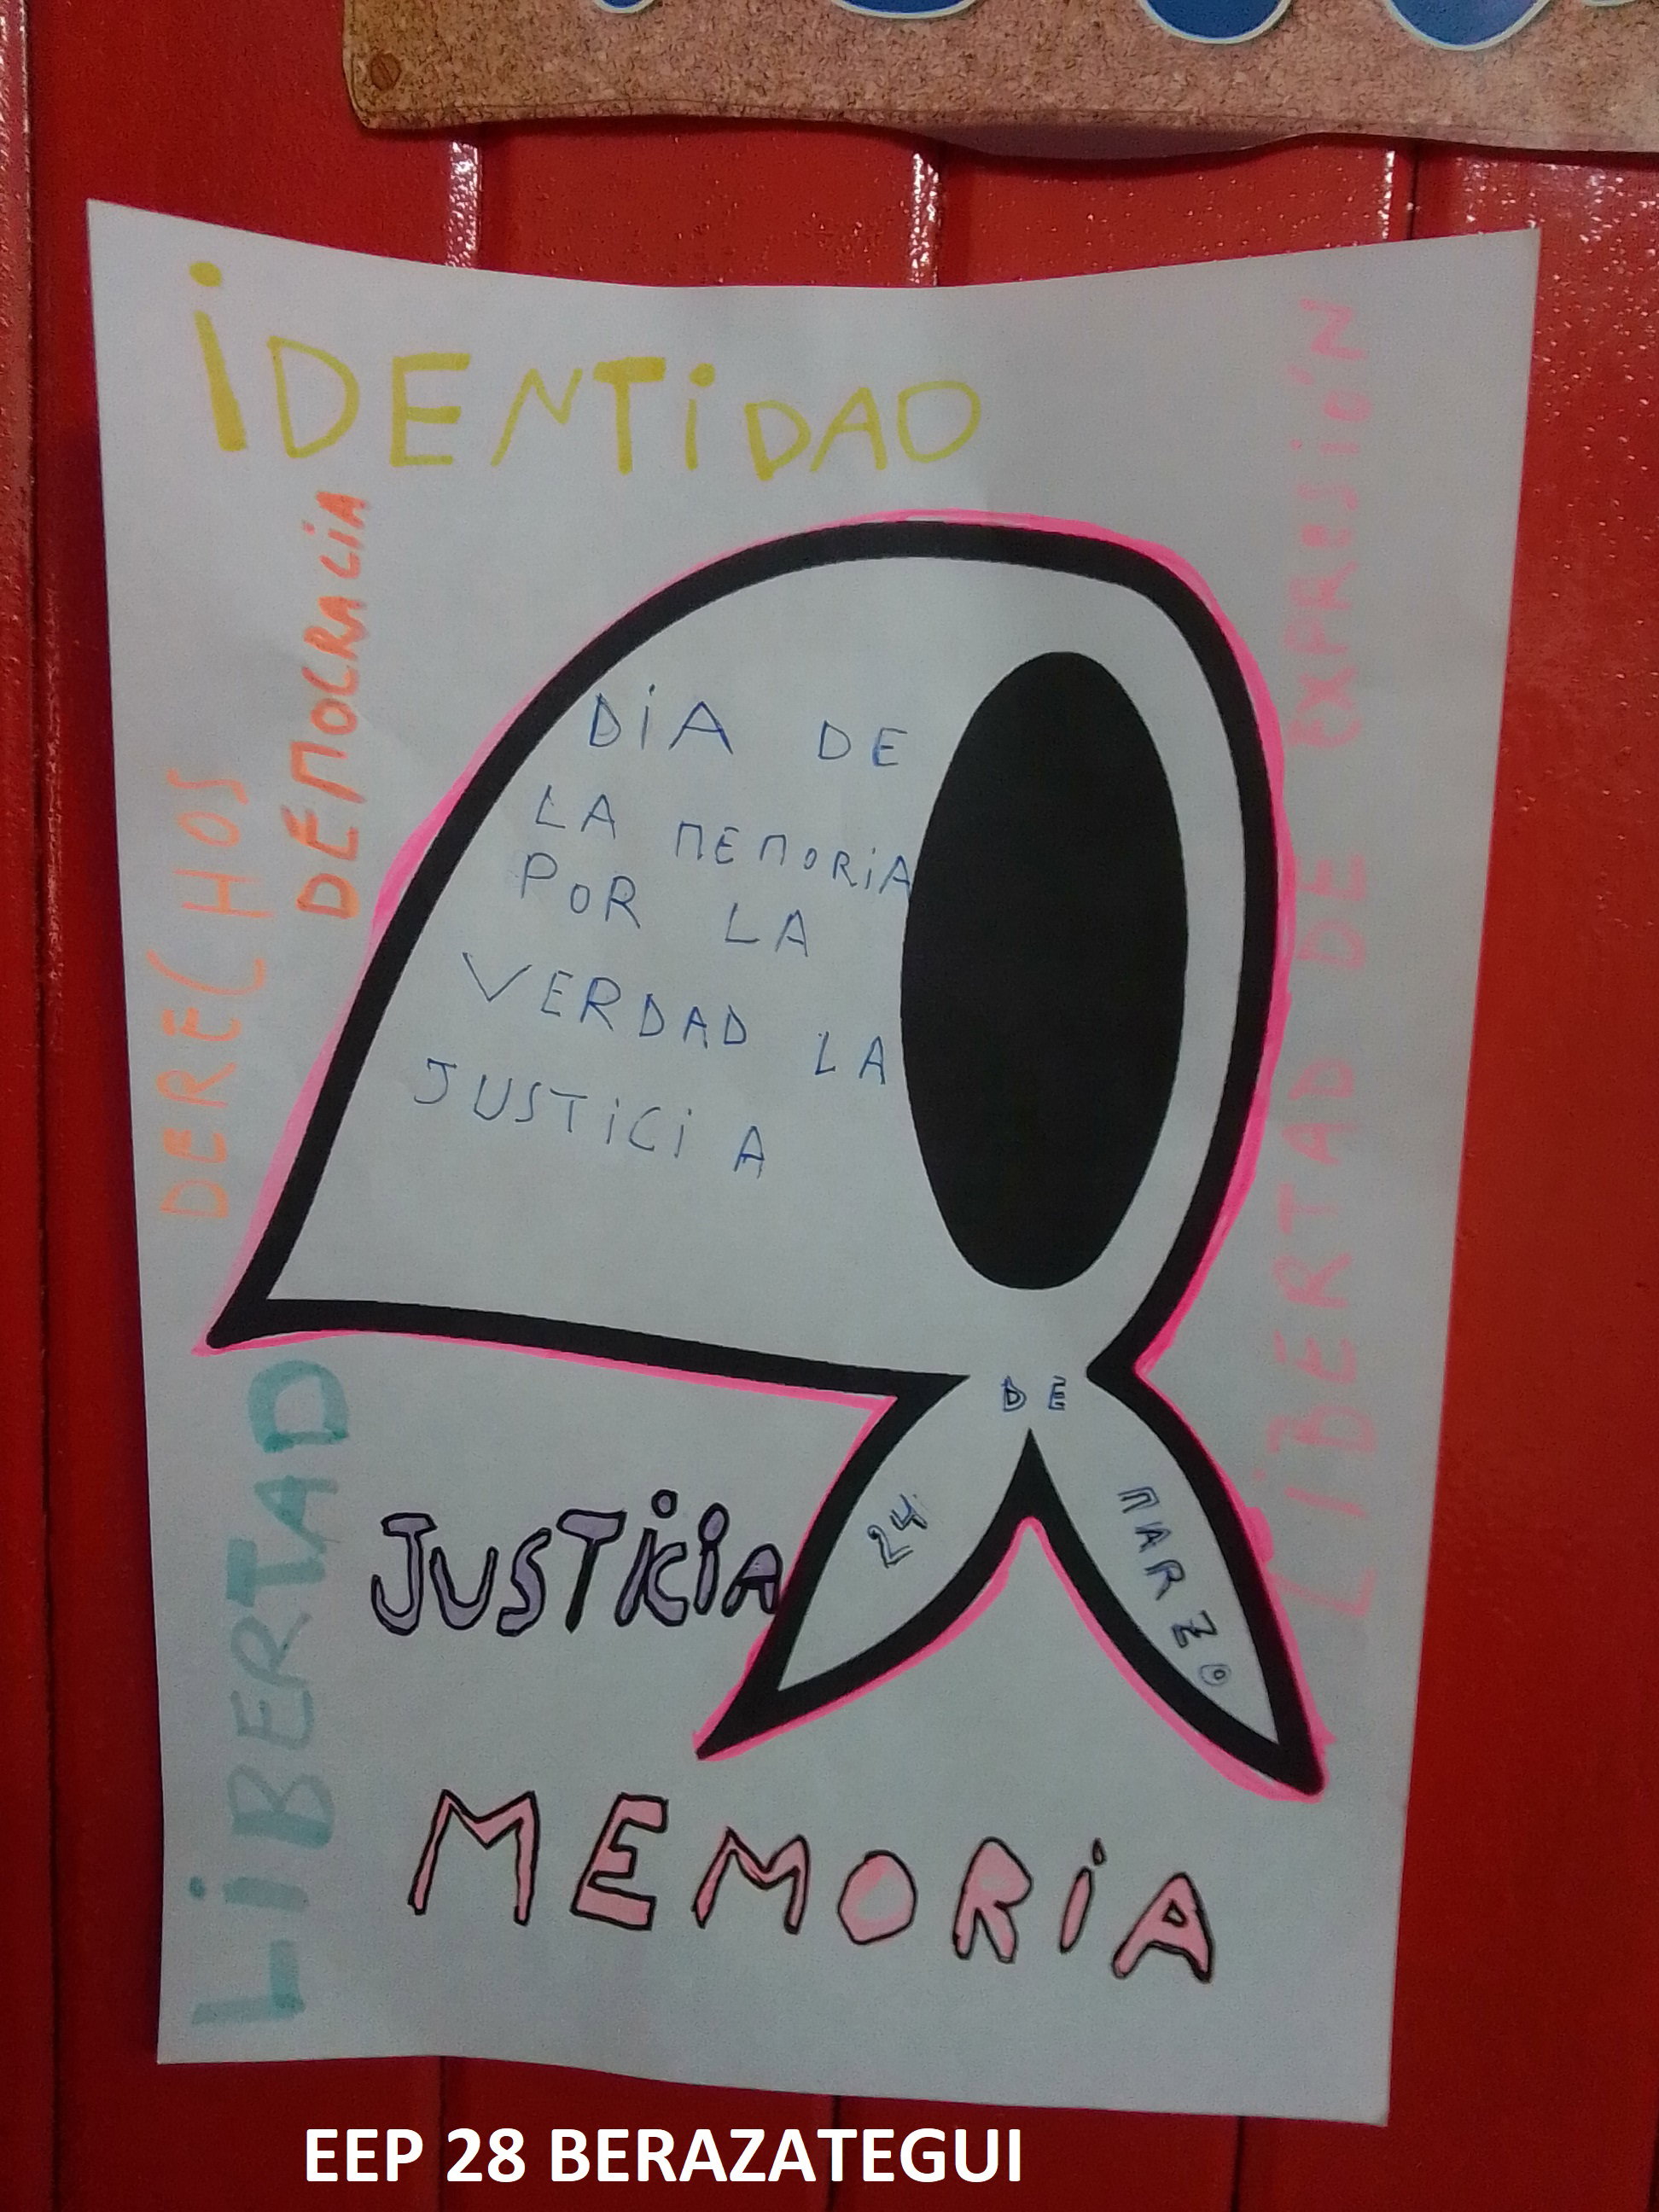 iDENTiDAD
DEMOCRACiA
DERECHOS
LiBERTAD DE EXPRESIÓN
DiA DE
LA MEMORiA
POR LA
VERDAD LA
JUSTiCiA
24 DE MARZO
LiBERTAD
JUSTiCiA
MEMORiA
EEP 28 BERAZATEGUI